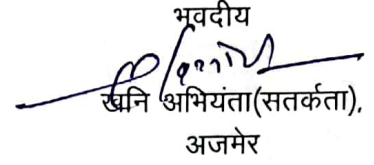 भवदीय
खनि अभियंता(सतर्कता),
अजमेर